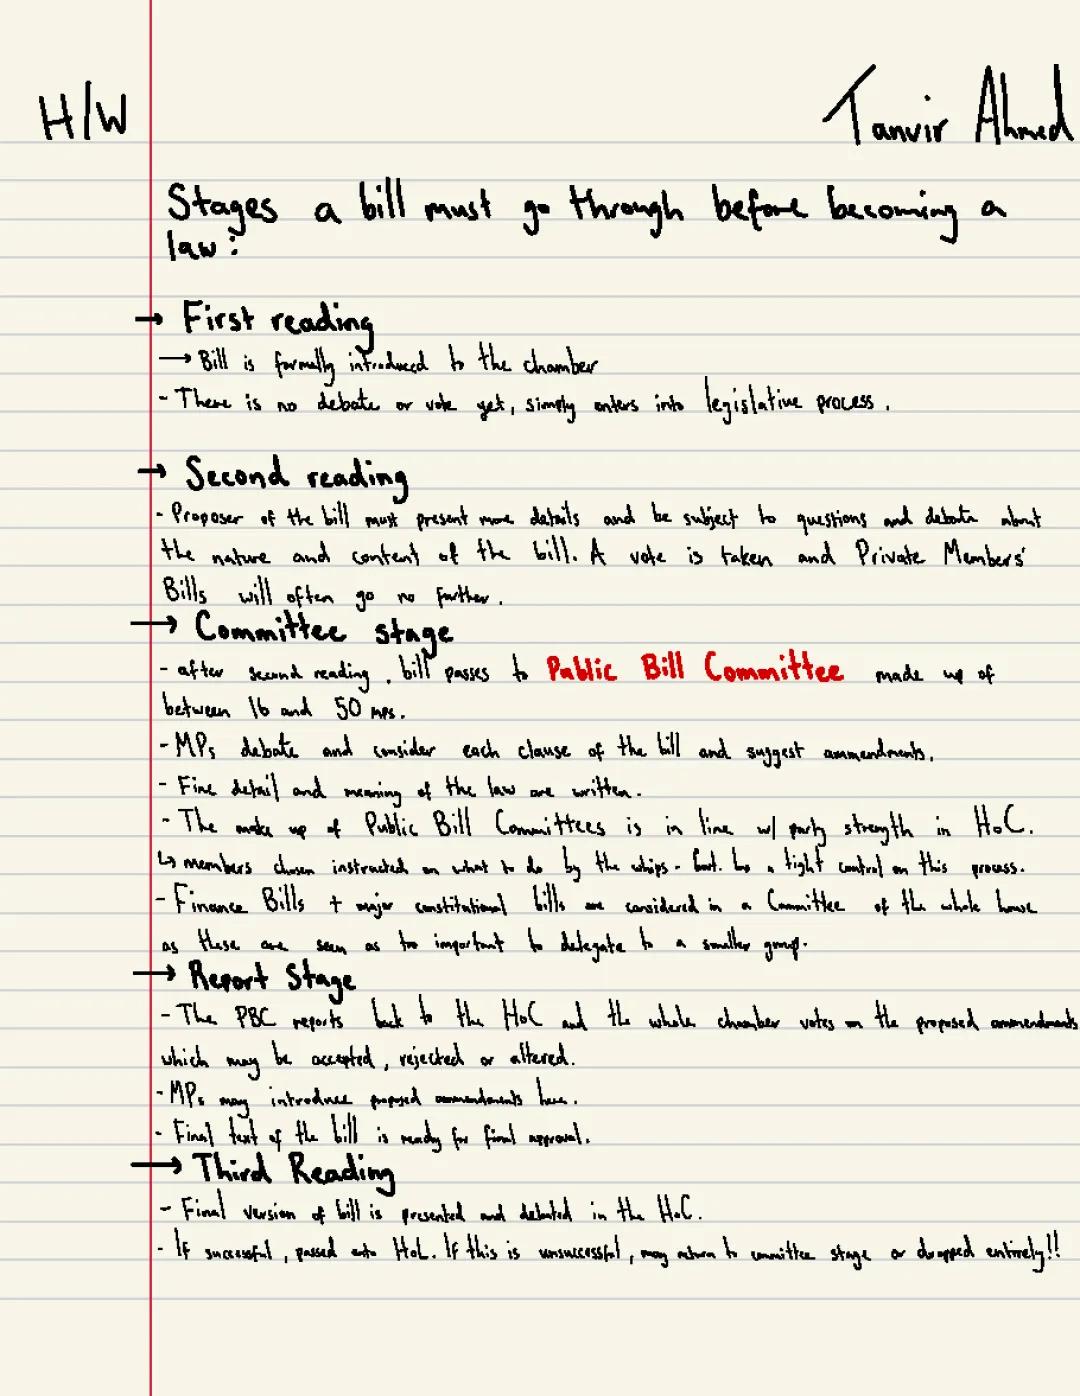 H/W
Tanvir Ahmed
Stages a bill must go through before becoming a
law:
→ First reading
→ Bill is formally introduced to the chamber
- There is no debate or vote yet, simply enters into legislative process.
→ Second reading
- Proposer of the bill must present more details and be subject to questions and debate about
the nature and content of the bill. A vote is taken and Private Members'
Bills will often go no further.
→ Committee stage
- after second reading, bill passes to Public Bill Committee made up of
between 16 and 50 MPs.
- MPs debate and consider each clause of the bill and suggest ammendments.
- Fine detail and meaning of the law are written.
- The make up of Public Bill Committees is in line w/ party strength in HoC.
↳ members chosen instructed on what to do by the whips - Govt. has a tight control on this process.
- Finance Bills + major constitutional bills are considered in a Committee of the whole house
as these are seen as too important to delegate to a smaller group.
→ Report Stage
- The PBC reports back to the HoC and the whole chamber votes on the proposed ammendments
which may be accepted, rejected or altered.
- MPs may introduce proposed ammendments here.
- Final text of the bill is ready for final approval.
→ Third Reading
- Final version of bill is presented and debated in the HoC.
- If successful, passed onto HoL. If this is unsuccessful, may return to committee stage or dropped entirely!!